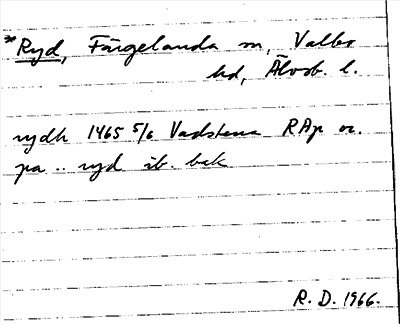 *Ryd, Färgelanda sn, Valbo
hd, Älvsb. l.
rydh 1465 5/6 Vadstena RAp or.
pa .. ryd ib. bak
R. D. 1966.